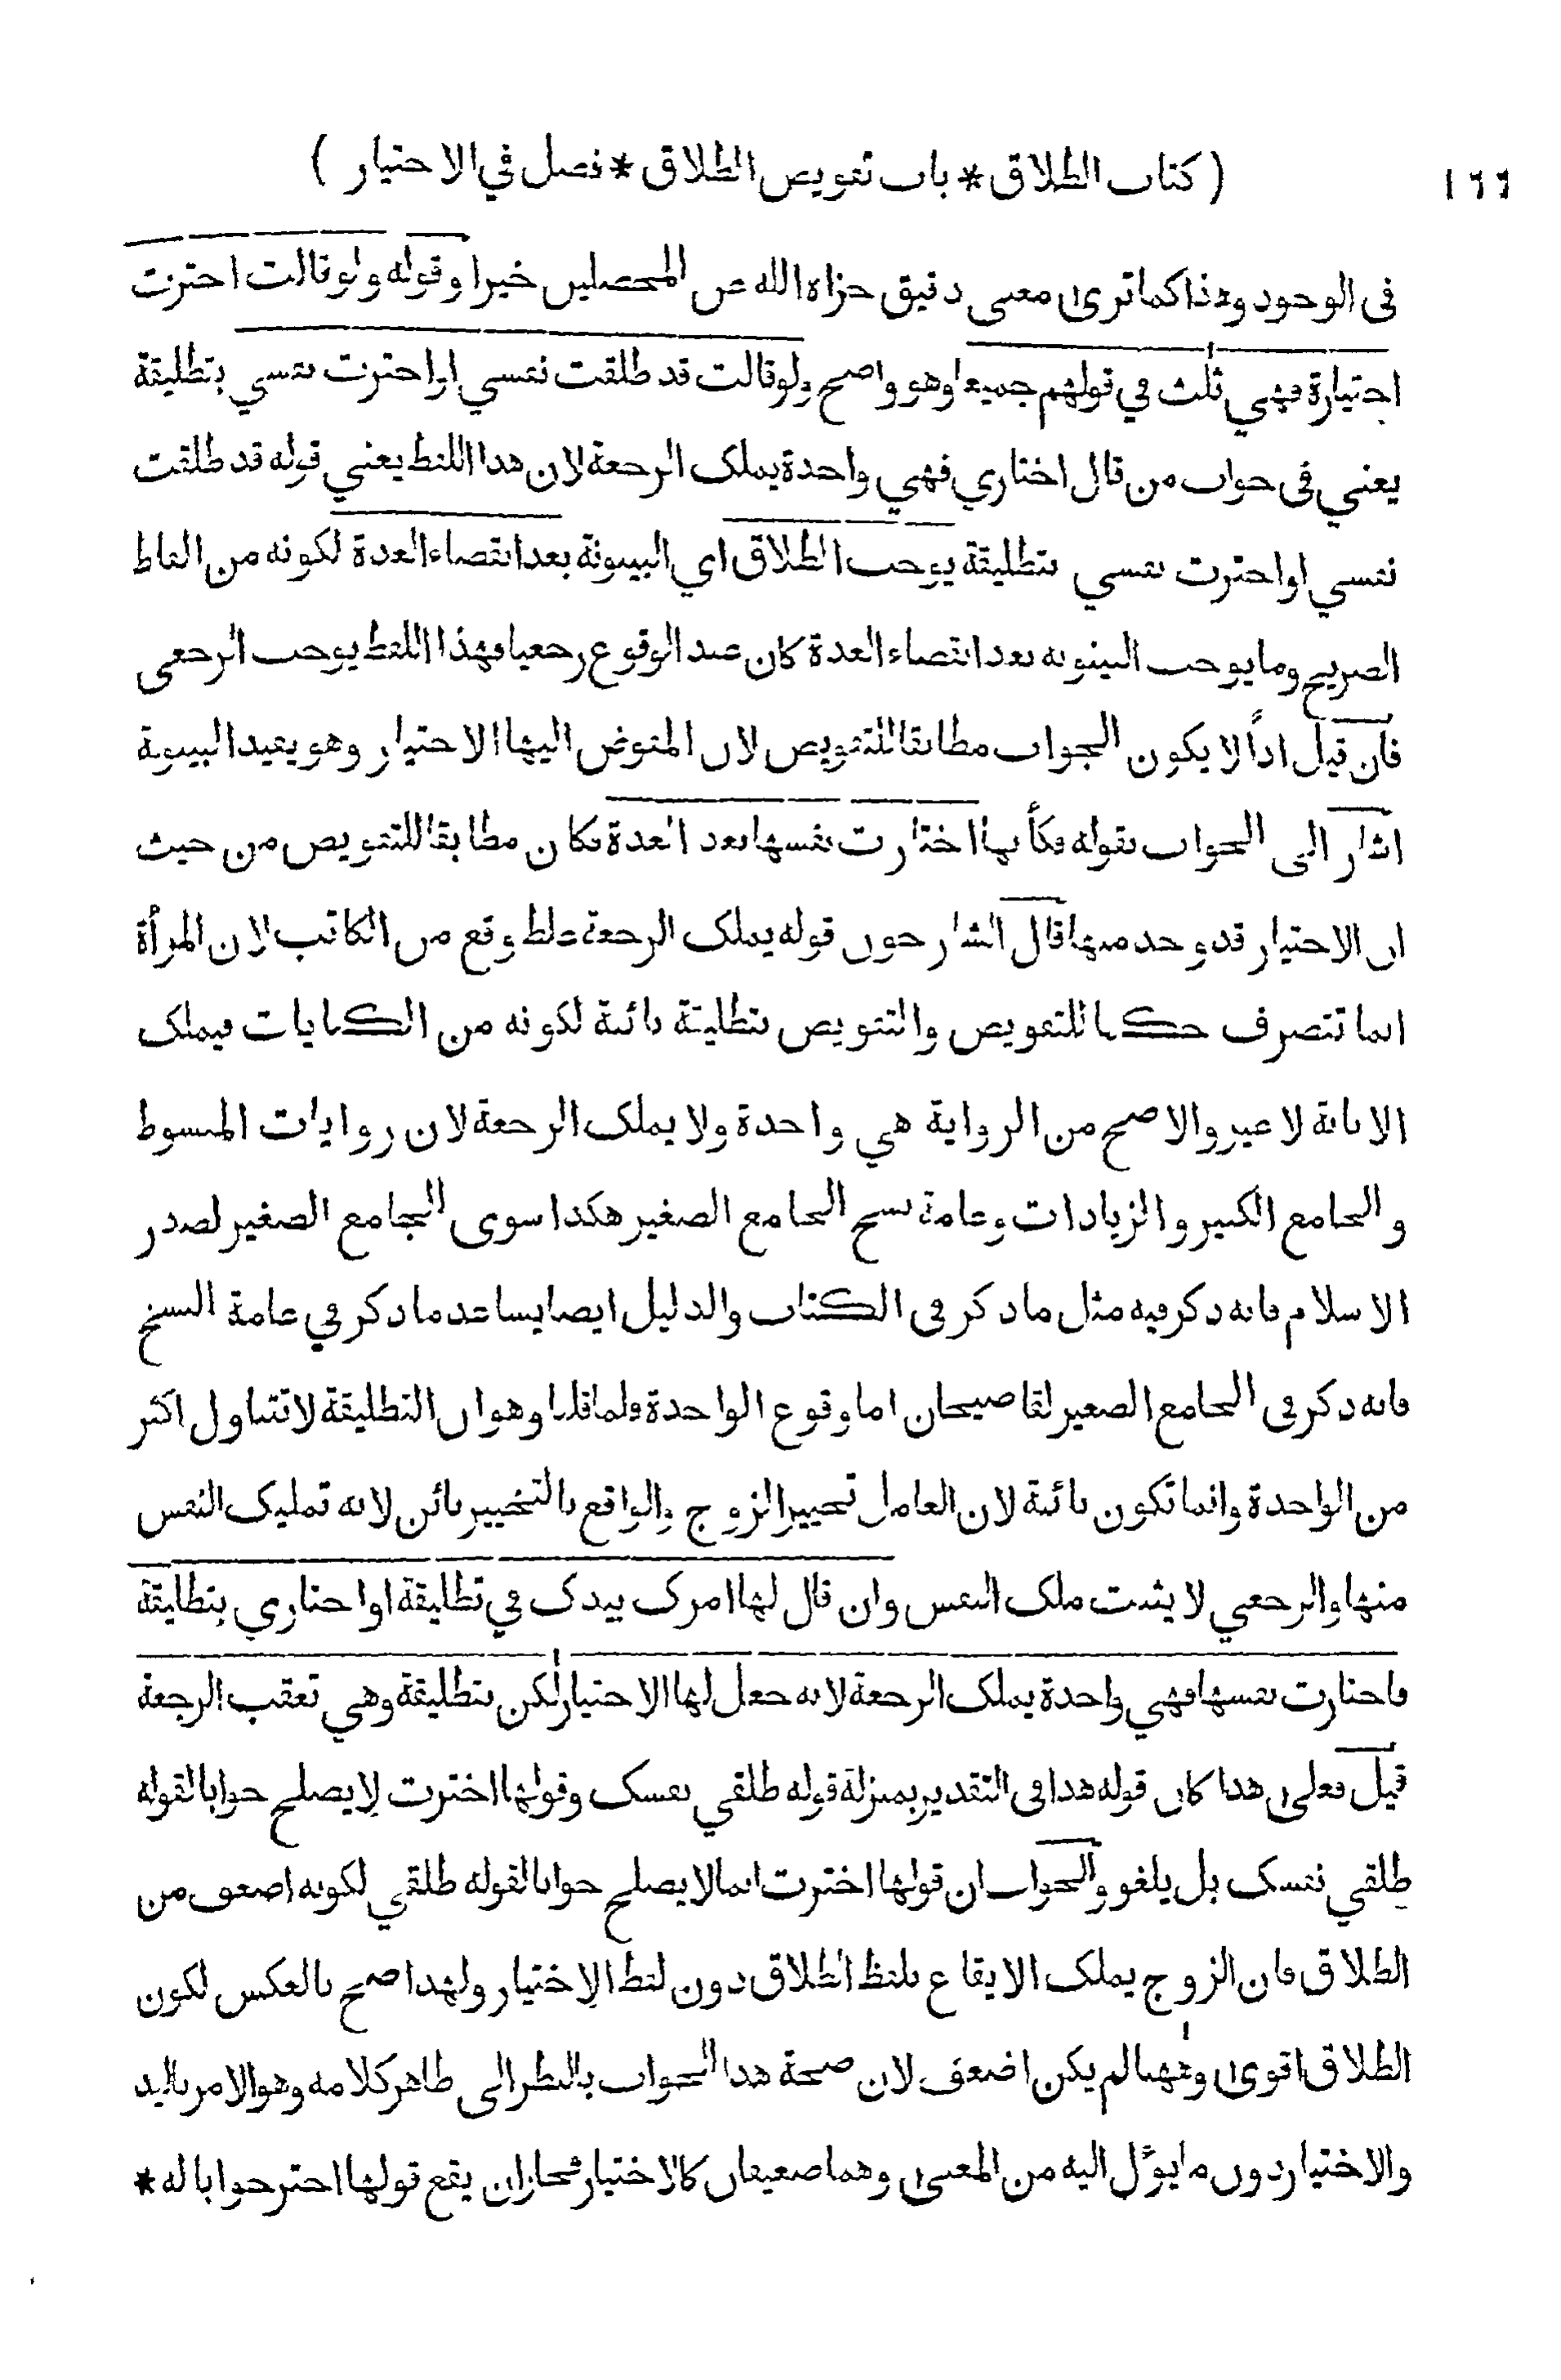 ( كتاب الطلاق * باب تفويض الطلاق * فصل في الاختيار ) ١٦٦
في الوجود وهذا كما ترى معنى دقيق جزاه الله عن المحصلين خيرا وقوله ولو قالت اخترت
اختيارة فهي ثلث في قولهم جميعا وهو واضح ولو قالت قد طلقت نفسي او اخترت نفسي بتطليقة
يعني في جواب من قال اختاري فهي واحدة يملك الرجعة لان هذا اللفظ يعني قوله قد طلقت
نفسي او اخترت نفسي بتطليقة يوجب الطلاق اي البينونة بعد انقضاء العدة لكونه من الفاظ
الصريح وما يوجب البينونة بعد انقضاء العدة كان عند الوقوع رجعيا فهذا اللفظ يوجب الرجعي
فان قيل اذاً لا يكون الجواب مطابقا للتفويض لان المفوض اليها الاختيار وهو يفيد البينونة
اشار الى الجواب بقوله فكأنها اختارت نفسها بعد العدة فكان مطابقا للتفويض من حيث
ان الاختيار قد وجد منها قال الشارحون قوله يملك الرجعة غلط وقع من الكاتب لان المرأة
انما تتصرف حكما للتفويض والتفويض بتطليقة بائنة لكونه من الكنايات فيملك
الابانة لا غير والاصح من الرواية هي واحدة ولا يملك الرجعة لان روايات المبسوط
والجامع الكبير والزيادات وعامة نسخ الجامع الصغير هكذا سوى الجامع الصغير لصدر
الاسلام فانه ذكر فيه مثل ما ذكر في الكتاب والدليل ايضا يساعد ما ذكر في عامة النسخ
فانه ذكر في الجامع الصغير لقاضيخان اما وقوع الواحدة فلما قلنا وهو ان التطليقة لا تتناول اكثر
من الواحدة وانما تكون بائنة لان العامل تخيير الزوج والواقع بالتخيير بائن لانه تمليك النفس
منها والرجعي لا يثبت ملك النفس وان قال لها امرك بيدك في تطليقة او اختاري بتطليقة
فاختارت نفسها فهي واحدة يملك الرجعة لانه جعل لها الاختيار لكن بتطليقة وهي تعقب الرجعة
قيل فعلى هذا كان قوله هذا في التقدير بمنزلة قوله طلقي نفسك وقولها اخترت لا يصلح جوابا لقوله
طلقي نفسك بل يلغو والجواب ان قولها اخترت انما لا يصلح جوابا لقوله طلقي لكونه اضعف من
الطلاق فان الزوج يملك الايقاع بلفظ الطلاق دون لفظ الاختيار ولهذا صح بالعكس لكون
الطلاق اقوى وههنا لم يكن اضعف لان صحة هذا الجواب بالنظر الى ظاهر كلامه وهو الامر باليد
والاختيار دون ما يؤل اليه من المعنى وهما ضعيفان كالاختيار فجاز ان يقع قولها اختر جوابا له *